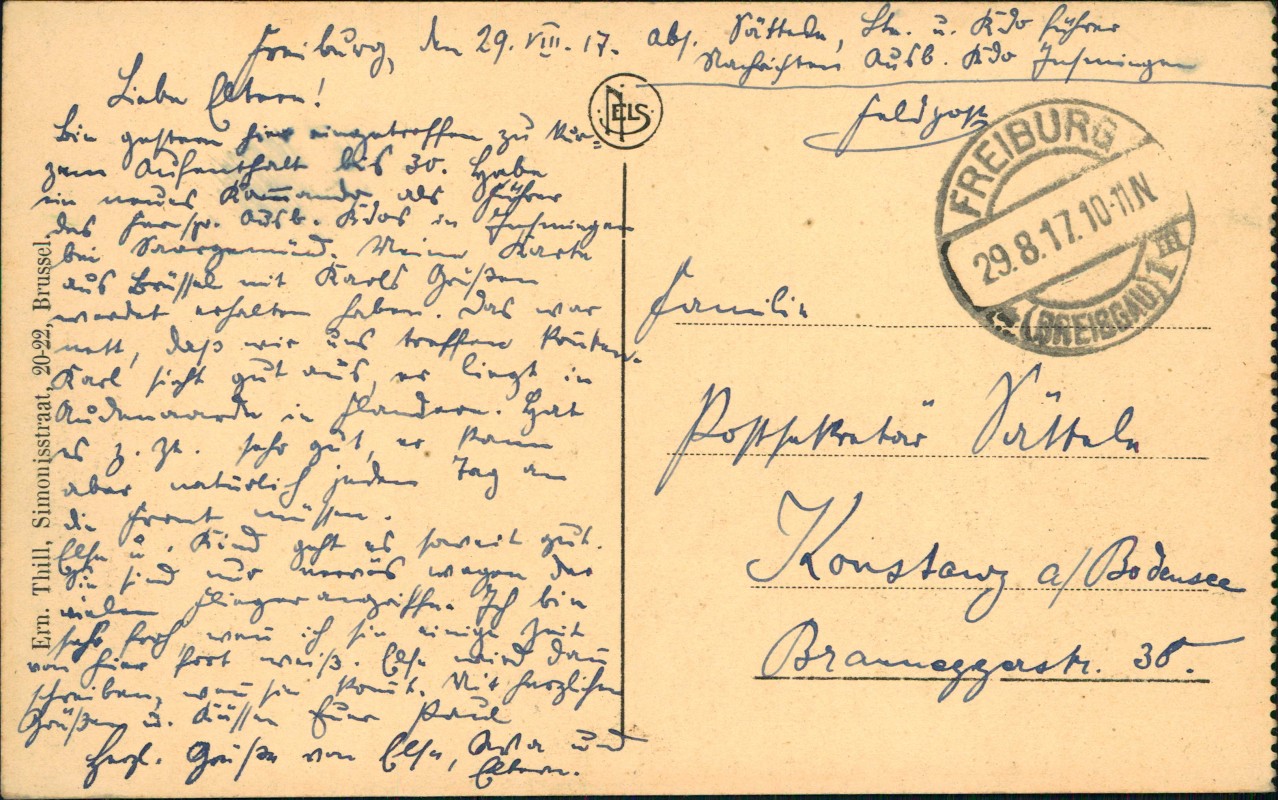 Freiburg, den 29. VIII. 17.
Abs. Sättele, Ltn. u. Kdo führer
Nachrichten Ausb. Kdo Insmingen
Feldpost
Liebe Eltern!
Bin gestern hier eingetroffen zu kur=
zem Aufenthalt bis 30. Habe
ein neues Kommando als Führer
des Fernspr. Ausb. Kdos in Insmingen
bei Saargemünd. Meine Karte
aus Brüssel mit Karls Grüßen
werdet erhalten haben. Das war
nett, daß wir uns treffen konnten.
Karl sieht gut aus, er liegt in
Audenaarde in Flandern. Hat
es z. Zt. sehr gut, er kann
aber natürlich jeden Tag an
die Front müssen.
Else u. Kind geht es soweit gut.
Sie sind nur nervös wegen der
vielen Fliegerangriffe. Ich bin
sehr froh, wenn ich sie einige Zeit
von hier fort weiß. Else wird dann
schreiben, wenn sie kommt. Mit herzlichen
Grüßen u. Küssen Euer Paul
Herzl. Grüße von Else, und
Eltern.
NELS
FREIBURG
29.8.17.10-11N
(BREISGAU) 1
Familie
Postsekretär Sättele
Konstanz a/Bodensee
Brauneggerstr. 36.
Ern. Thill, Simonisstraat, 20-22, Brussel.